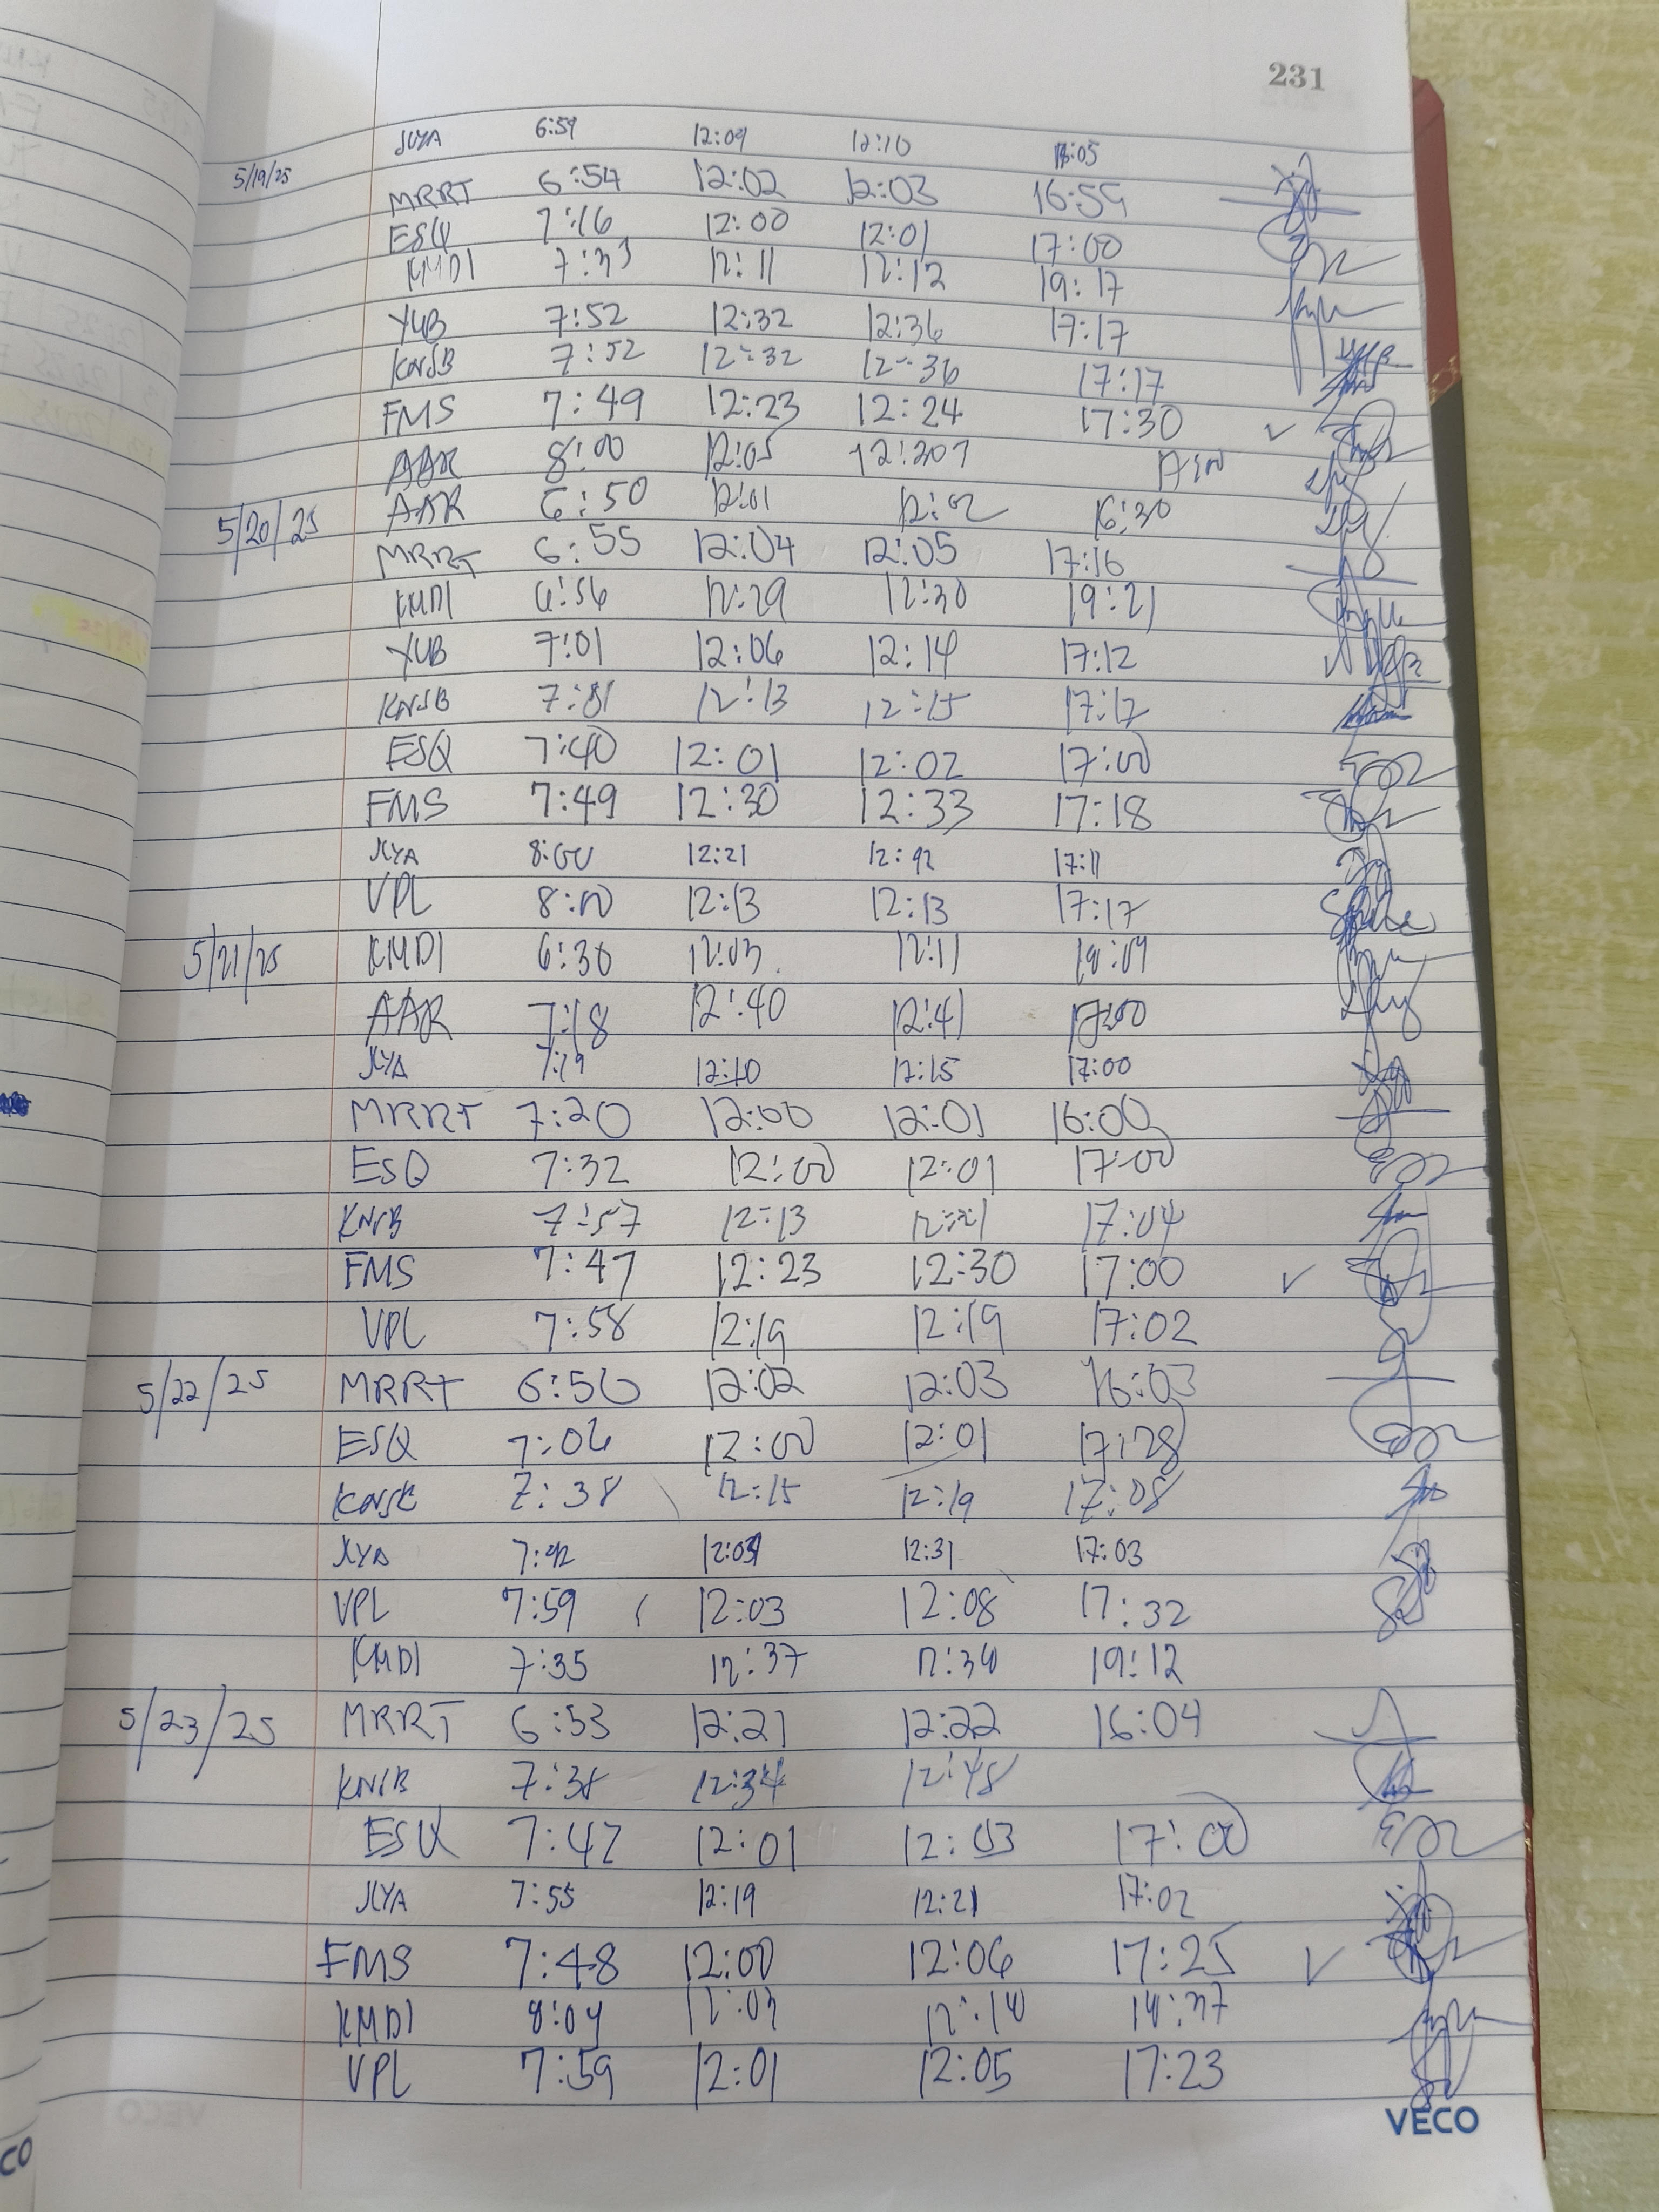 231
6:59 12:09 12:10
5/19/25 MRRT 6:54 12:02 12:03 16:59
ESQ 7:16 12:00 12:01 17:00
KMDI 7:33 12:11 12:12 19:17
YUB 7:52 12:32 12:36 17:17
KNSB 7:52 12:32 12:36 17:17
FMS 7:49 12:23 12:24 17:30 ✓
AAR 8:00 12:05
5/20/25 AAR 6:50 12:01 12:02 16:30
MRRT 6:55 12:04 12:05 17:16
KMDI 6:56 12:29 12:30 19:21
YUB 7:01 12:06 12:14 17:12
KNSB 12:13 12:15 17:12
ESQ 7:40 12:01 12:02 17:00
FMS 7:49 12:30 12:33 17:18
8:00 12:21 17:11
VPL 8:00 12:13 12:13 17:17
5/21/25 KMDI 6:30 12:03 12:11
AAR 7:18 12:40 12:41 17:00
7:19 12:10 12:15 17:00
MRRT 7:20 12:00 12:01 16:00
ESQ 7:32 12:00 12:01 17:00
KNSB 7:57 12:13 12:21 17:04
FMS 7:47 12:23 12:30 17:00 ✓
VPL 7:58 12:19 12:19 17:02
5/22/25 MRRT 6:50 12:02 12:03 16:03
ESQ 7:06 12:00 12:01 17:28
7:38 12:15 12:19 17:08
12:31 17:03
VPL 7:59 12:03 12:08 17:32
KMDI 7:35 12:37 19:12
5/23/25 MRRT 6:53 12:21 12:22 16:04
KNSB 7:38 12:34 12:48
ESQ 7:42 12:01 12:03 17:00
7:55 12:19 12:21 17:02
FMS 7:48 12:00 12:06 17:25 ✓
KMDI 8:04 12:03
VPL 7:59 12:01 12:05 17:23
VECO